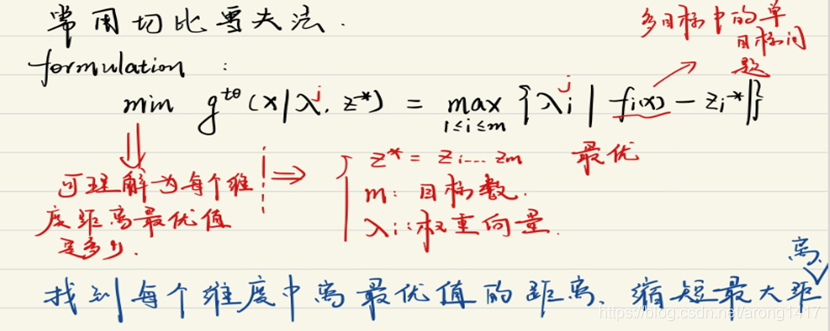 常用切比雪夫法.
formulation :
多目标中的单
目标问
题
min g^{te}(x|λ^j, z*) = max_{1≤i≤m} {λ_i^j | f_i(x) - z_i* |}
最优
可理解为每个维
度距离最优值
是多少.
z* = z_i... z_m
m: 目标数.
λ_i: 权重向量.
找到每个维度中离最优值的距离、缩短最大距离
https://blog.csdn.net/arong1417